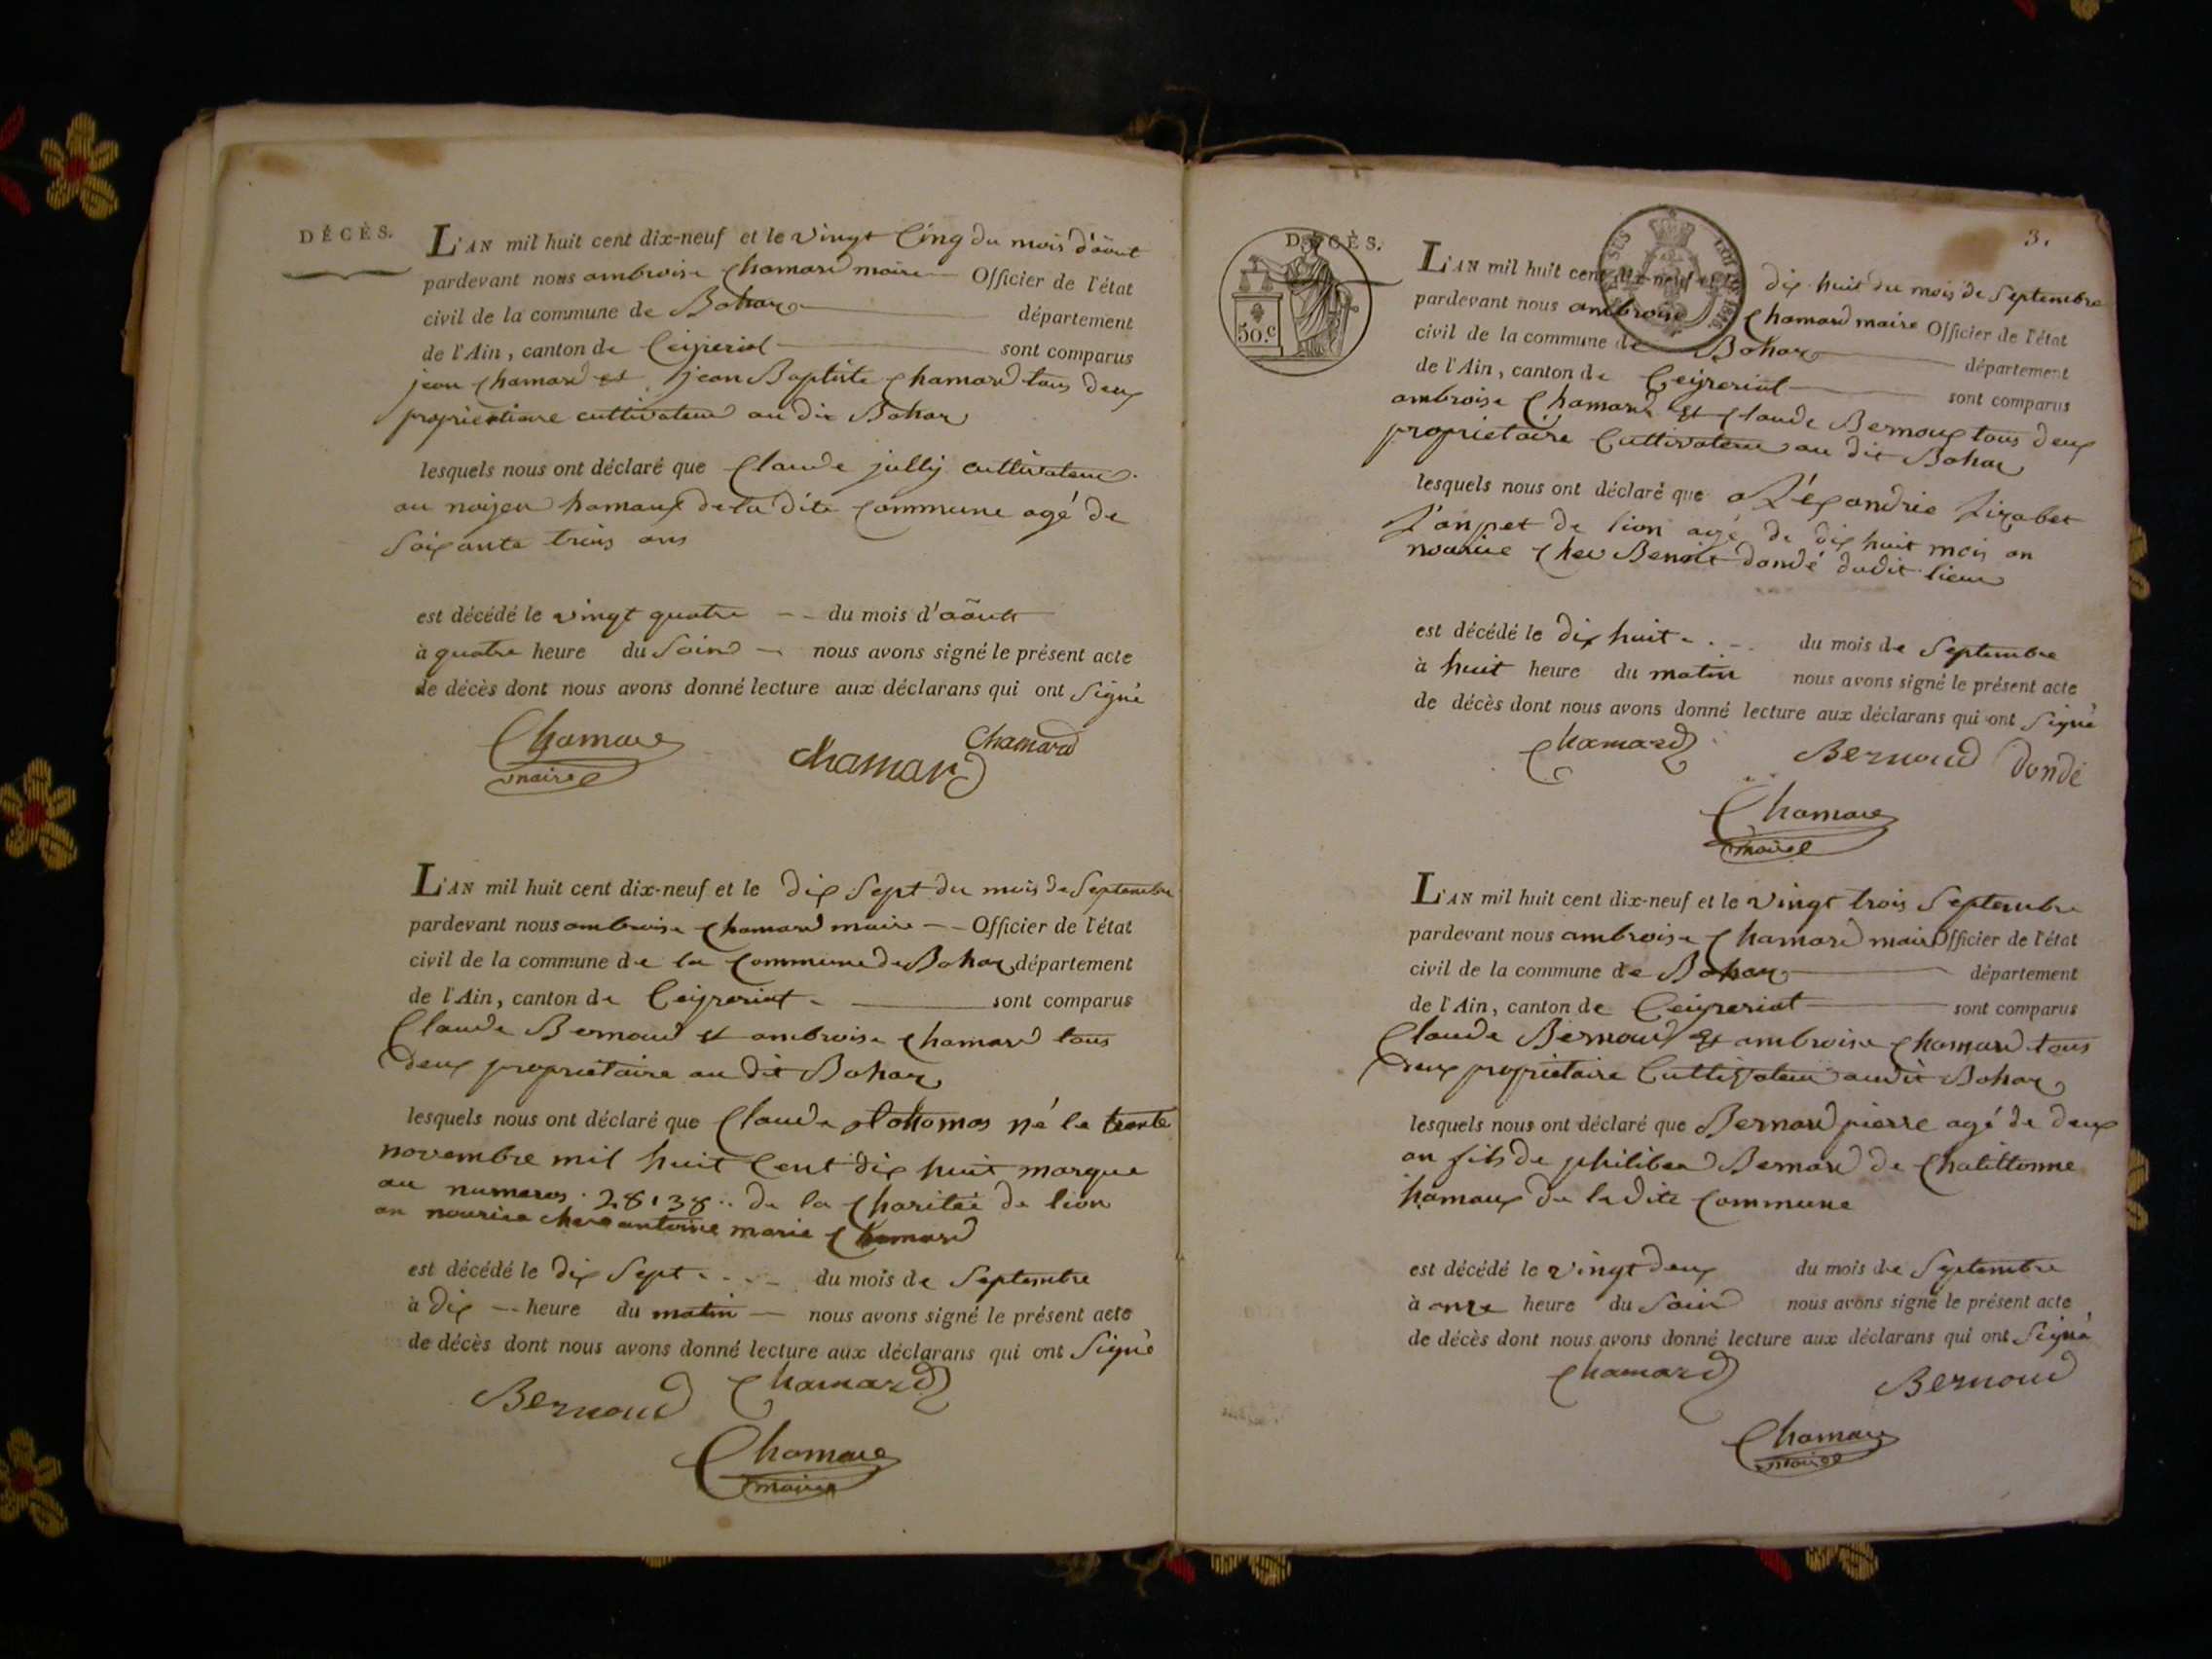 DÉCÈS.
L'AN mil huit cent dix-neuf et le vingt Cinq du mois d'août
pardevant nous ambroise Chamard maire Officier de l'état
civil de la commune de Bohas département
de l'Ain, canton de Ceyzeriat sont comparus
jean Chamard et jean Baptiste Chamard tous deux
proprietiare cultivateur au dit Bohas
lesquels nous ont déclaré que Claude jully cultivateur
au noyer hamaux de la dite Commune agé de
Soixante trois ans
est décédé le vingt quatre du mois d'août
à quatre heure du Soir nous avons signé le présent acte
de décès dont nous avons donné lecture aux déclarans qui ont Signé
Chamard Chamard
Chamard
maire
L'AN mil huit cent dix-neuf et le dix Sept du mois de Septembre
pardevant nous ambroise Chamard maire Officier de l'état
civil de la commune de la Commune de Bohas département
de l'Ain, canton de Ceyzeriat sont comparus
Claude Bernoud et ambroise Chamard tous
deux proprietaire au dit Bohas
lesquels nous ont déclaré que Claude né le trente
novembre mil huit Cent dix huit marque
au numeros 28138 de la Charitéé de lion
an nourice chez antoine marie Chamard
est décédé le dix Sept du mois de Septembre
à dix heure du matin nous avons signé le présent acte
de décès dont nous avons donné lecture aux déclarans qui ont Signé
Bernoud Chamard
Chamard
maire
DÉCÈS.
50.c
3.
L'AN mil huit cent dix-neuf et le dix huit du mois de Septembre
pardevant nous ambroise Chamard maire Officier de l'état
civil de la commune de Bohas département
de l'Ain, canton de Ceyzeriat sont comparus
ambroise Chamard et Claude Bernoux tous deux
proprietaire Cultivateur au dit Bohas
lesquels nous ont déclaré que
de lion agé de dix huit mois an
nourice chez Benoit dondé dudit lieux
est décédé le dix huit du mois de Septembre
à huit heure du matin nous avons signé le présent acte
de décès dont nous avons donné lecture aux déclarans qui ont Signé
Chamard Bernoud dondé
Chamard
maire
L'AN mil huit cent dix-neuf et le vingt trois Septembre
pardevant nous ambroise Chamard maire Officier de l'état
civil de la commune de Bohas département
de l'Ain, canton de Ceyzeriat sont comparus
Claude Bernoud et ambroise Chamard tous
Deux proprietaire Cultivateur audit Bohas
lesquels nous ont déclaré que Bernard pierre agé de deux
an fils de philiber Bernard de Chatillonne
hamaux de la dite Commune
est décédé le vingt deux du mois de Septembre
à onze heure du Soir nous avons signé le présent acte
de décès dont nous avons donné lecture aux déclarans qui ont Signé
Chamard Bernoud
Chamard
maire